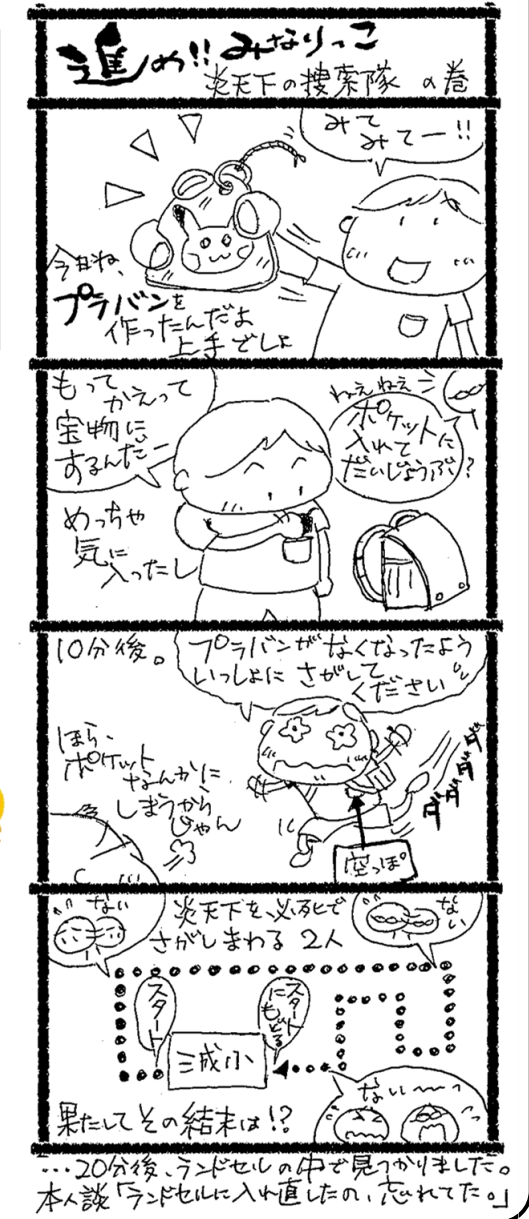 進め!! みなりっこ
炎天下の捜索隊 の巻
みて
みてー!!
今日ね、
プラバンを
作ったんだよ
上手でしょ
もって
かえって
宝物に
するんだー
ねぇねぇ
ポケットに
入れて
だいじょうぶ?
めっちゃ
気に
入ったし
10分後。
プラバンがなくなったよう
いっしょに さがして
ください
ほら、
ポケット
なんかに
しまうから
じゃん
ダダダダ
空っぽ
ない
炎天下を必死で
さがしまわる 2人
ない
スタート
スタート
にもどる
三成小
ない〜〜っ
果たしてその結末は!?
…20分後、ランドセルの中で見つかりました。
本人談「ランドセルに入れ直したの、忘れてた。」